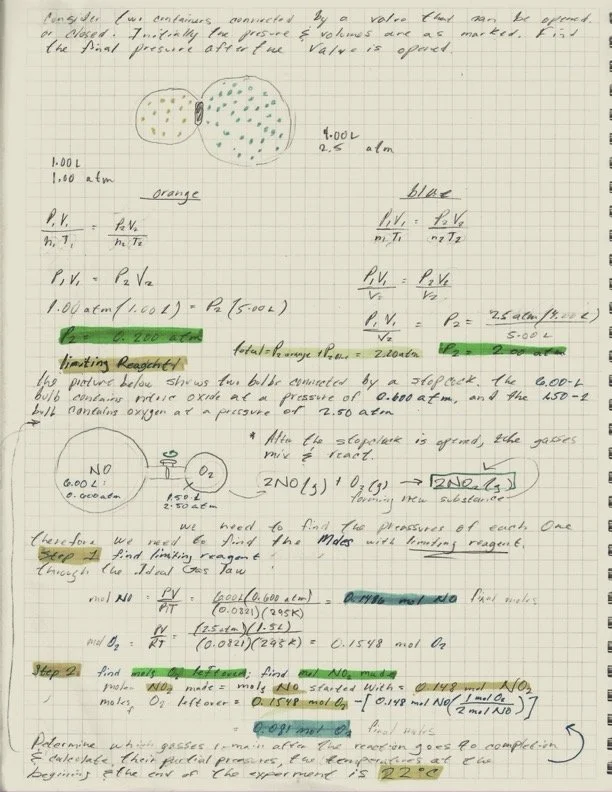 Consider two containers connected by a valve that can be opened
or closed. Initially the presure & volumes are as marked. Find
the final presure after the valve is opened.
4.00L
2.5 atm
1.00L
1.00 atm
orange
blue
P₁V₁/n₁T₁ = P₂V₂/n₂T₂
P₁V₁/n₁T₁ = P₂V₂/n₂T₂
P₁V₁ = P₂V₂
P₁V₁/V₂ = P₂V₂/V₂
1.00 atm (1.00L) = P₂ (5.00L)
P₁V₁/V₂ = P₂ = 2.5 atm (4.00L)/5.00L
P₂ = 0.200 atm
total = P₂ orange + P₂ Blue = 2.20 atm
P₂ = 2.00 atm
limiting Reagent
the picture below shows two bulbs connected by a stopcock. the 6.00-L
bulb contains nitric oxide at a pressure of 0.600 atm, and the 1.50-L
bulb contains oxygen at a pressure of 2.50 atm
* After the stopcock is opened, the gasses
mix & react.
NO
6.00L
0.600atm
O₂
1.50L
2.50 atm
2NO(g) + O₂(g) → 2NO₂(g)
forming new substance
we need to find the pressures of each One
therefore we need to find the Moles with limiting reagent.
Step 1 find limiting reagent
through the Ideal Gas Law
mol NO = PV/RT = 6.00L(0.600 atm)/(0.0821)(295K) = 0.1486 mol NO final moles
mol O₂ = PV/RT = (2.5atm)(1.5L)/(0.0821)(295K) = 0.1548 mol O₂
Step 2. find mols O₂ leftover; find mol NO₂ made
moles NO₂ made = mols NO started with = 0.148 mol NO₂
moles O₂ leftover = 0.1548 mol O₂ - [0.148 mol NO(1 mol O₂/2 mol NO)]
= 0.081 mol O₂ final moles
Determine which gasses remain after the reaction goes to completion
& calculate their partial pressures, the temperatures at the
beginning & the end of the experment is 22°C